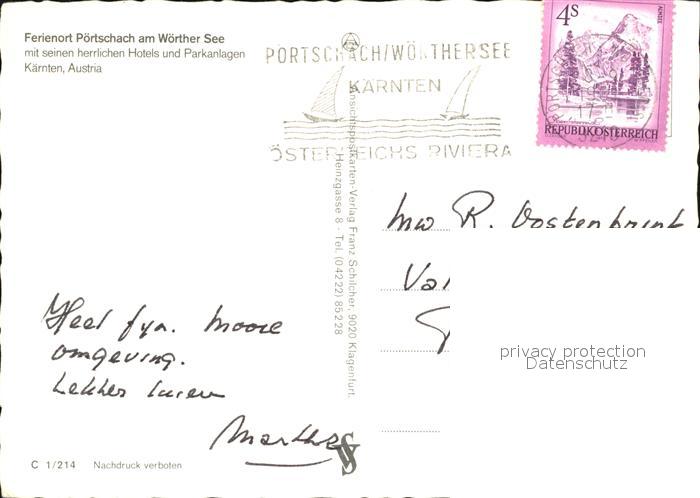 Ferienort Pörtschach am Wörther See
mit seinen herrlichen Hotels und Parkanlagen
Kärnten, Austria
PÖRTSCHACH/WÖRTHERSEE
KÄRNTEN
ÖSTERREICHS RIVIERA
4S
ALMSEE
REPUBLIK ÖSTERREICH
Ansichtspostkarten-Verlag Franz Schilcher, 9020 Klagenfurt,
Heinzgasse 8 - Tel. (04222) 85228
Mw R. Oostenbrink
privacy protection
Datenschutz
Heel fyn. Mooie
omgeving.
Lekker
C 1/214 Nachdruck verboten